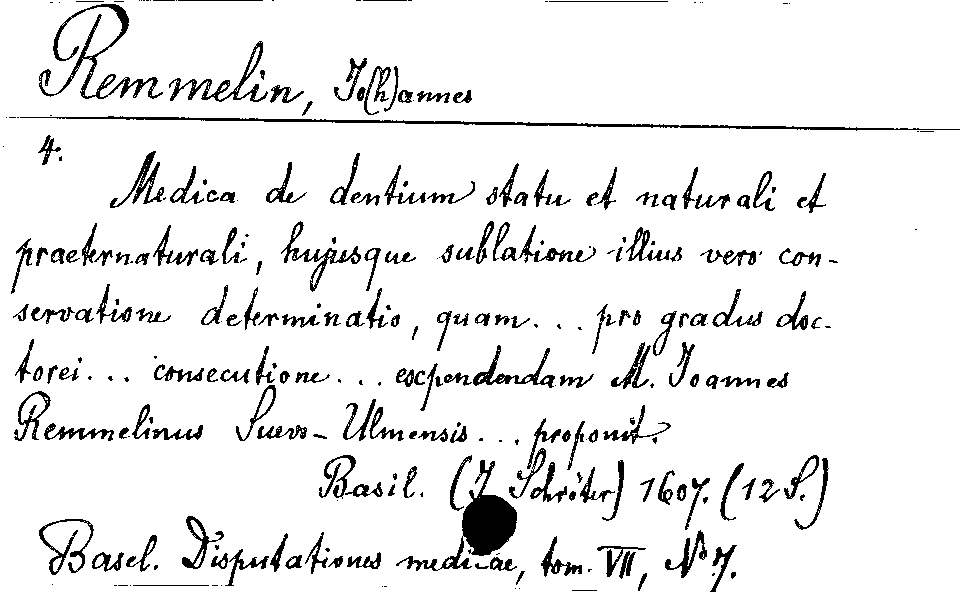 Remmelin, Jo(h)annes
4.
Medica de dentium statu et naturali et
praeternaturali, hujusque sublatione illius vero con-
servatione determinatio, quam... pro gradus doc-
torei... consecutione... expendendam M. Joannes
Remmelinus Suevo-Ulmensis... proponit.
Basil. (J Schröter) 1607. (12 S.)
Basel. Disputationes medicae, tom. VII, No 7.